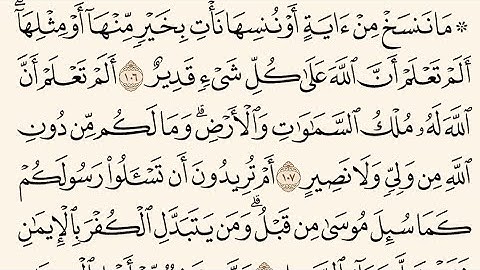 * مَا نَنسَخْ مِنْ ءَايَةٍ أَوْ نُنسِهَا نَأْتِ بِخَيْرٍ مِّنْهَآ أَوْ مِثْلِهَآ ۗ
أَلَمْ تَعْلَمْ أَنَّ ٱللَّهَ عَلَىٰ كُلِّ شَىْءٍ قَدِيرٌ ١٠٦ أَلَمْ تَعْلَمْ أَنَّ
ٱللَّهَ لَهُۥ مُلْكُ ٱلسَّمَٰوَٰتِ وَٱلْأَرْضِ ۗ وَمَا لَكُم مِّن دُونِ
ٱللَّهِ مِن وَلِىٍّ وَلَا نَصِيرٍ ١٠٧ أَمْ تُرِيدُونَ أَن تَسْـَٔلُوا۟ رَسُولَكُمْ
كَمَا سُئِلَ مُوسَىٰ مِن قَبْلُ ۗ وَمَن يَتَبَدَّلِ ٱلْكُفْرَ بِٱلْإِيمَٰنِ